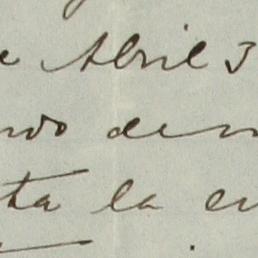 e Abril 3
ndo den
ta la en